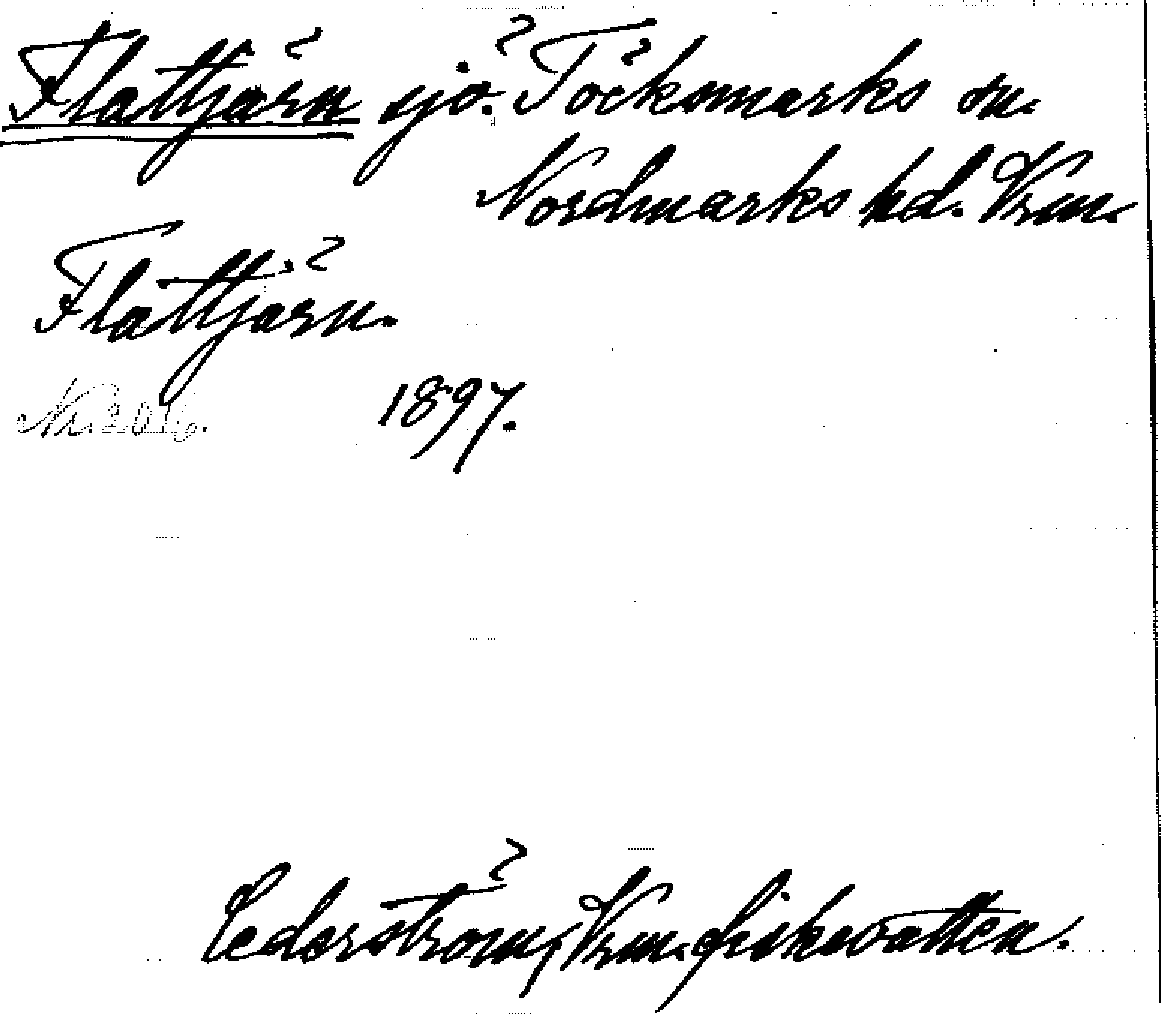 Flattjärn sjö. Töcksmarks sn.
Nordmarks hd. Vrm.
Flattjärn.
Nr. 2016. 1897.
Cederström, Vrm. fiskevatten.